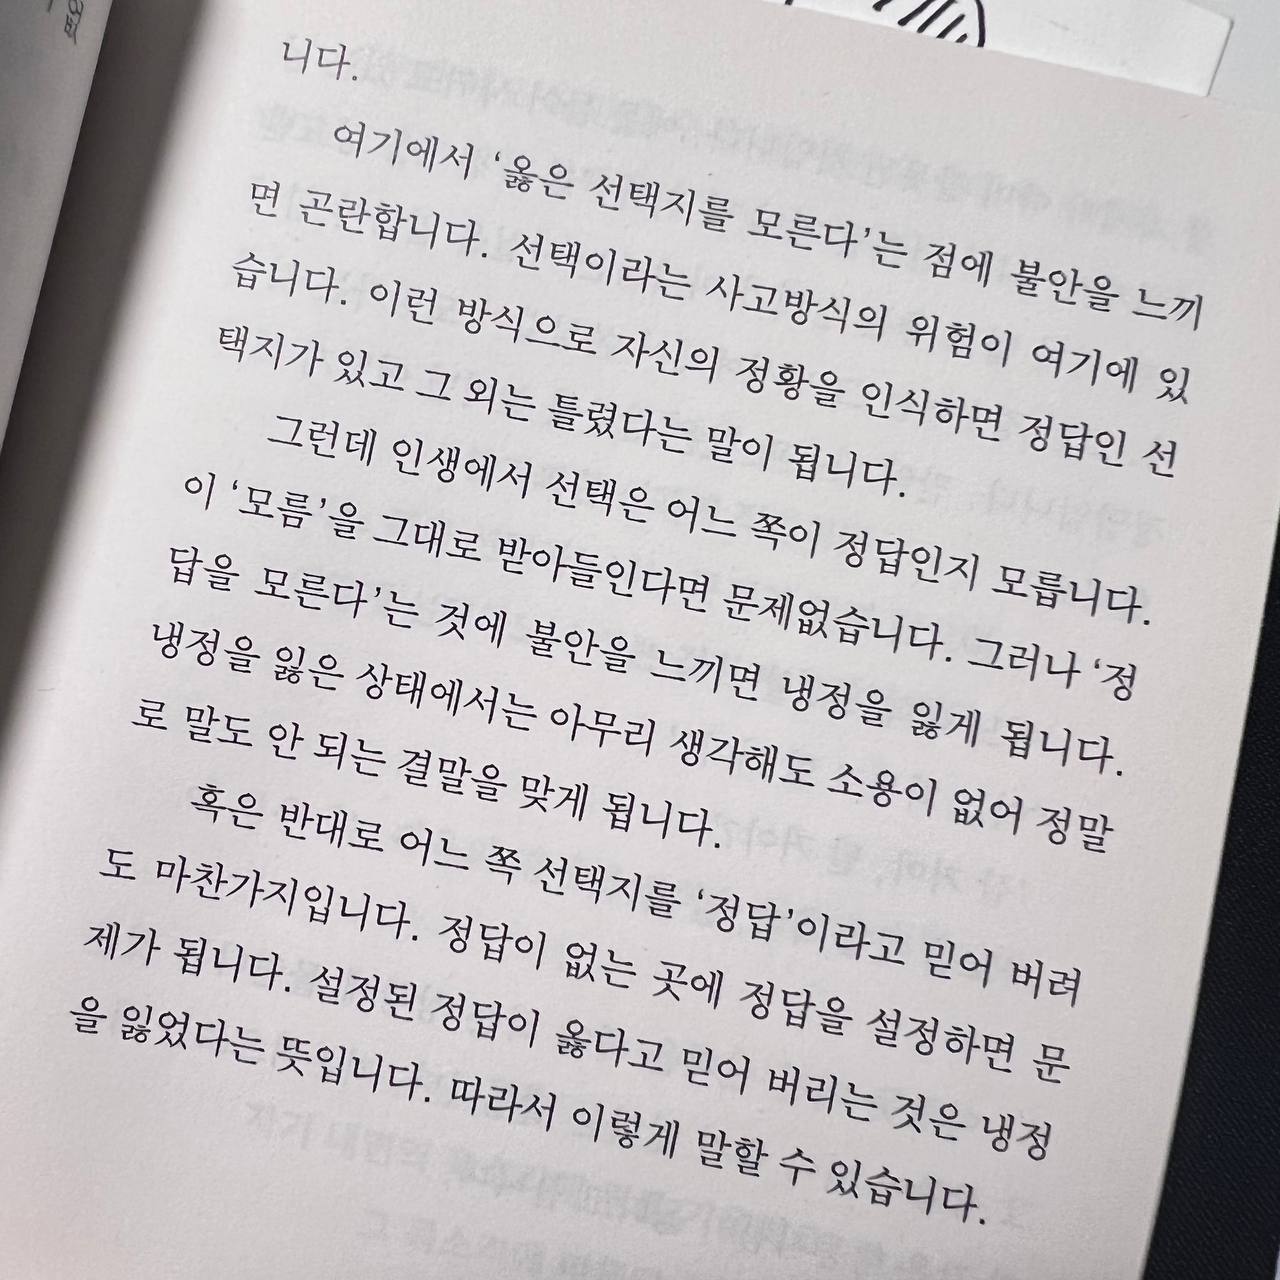 니다.
여기에서 ‘옳은 선택지를 모른다’는 점에 불안을 느끼
면 곤란합니다. 선택이라는 사고방식의 위험이 여기에 있
습니다. 이런 방식으로 자신의 정황을 인식하면 정답인 선
택지가 있고 그 외는 틀렸다는 말이 됩니다.
그런데 인생에서 선택은 어느 쪽이 정답인지 모릅니다.
이 ‘모름’을 그대로 받아들인다면 문제없습니다. 그러나 ‘정
답을 모른다’는 것에 불안을 느끼면 냉정을 잃게 됩니다.
냉정을 잃은 상태에서는 아무리 생각해도 소용이 없어 정말
로 말도 안 되는 결말을 맞게 됩니다.
혹은 반대로 어느 쪽 선택지를 ‘정답’이라고 믿어 버려
도 마찬가지입니다. 정답이 없는 곳에 정답을 설정하면 문
제가 됩니다. 설정된 정답이 옳다고 믿어 버리는 것은 냉정
을 잃었다는 뜻입니다. 따라서 이렇게 말할 수 있습니다.